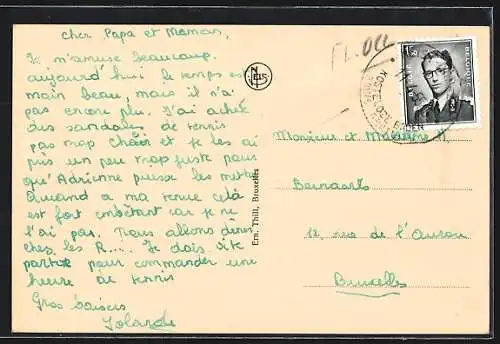 Cher Papa et Maman,
Je m'amuse beaucoup.
aujourd'hui le temps est
moin beau, mais il n'a
pas encore plu. J'ai acheté
des sandales de tennis
pas trop chair et je les ai
pris un peu trop juste pour
qu'Adrienne puisse les mettre
Quand a ma tenue celà
est fort embêtant car je ne
l'ai pas. Nous allons diner
chez les R.... Je dois vite
partir pour commander une
heure de tennis
Gros baisers
Yolande
NELS
Ern. Thill, Bruxelles
FL. OCC
BELGIQUE
KOKSIJDE BADEN
Monsieur et Madame
Bernaerts
12, rue de l'Aurore
Bruxelles